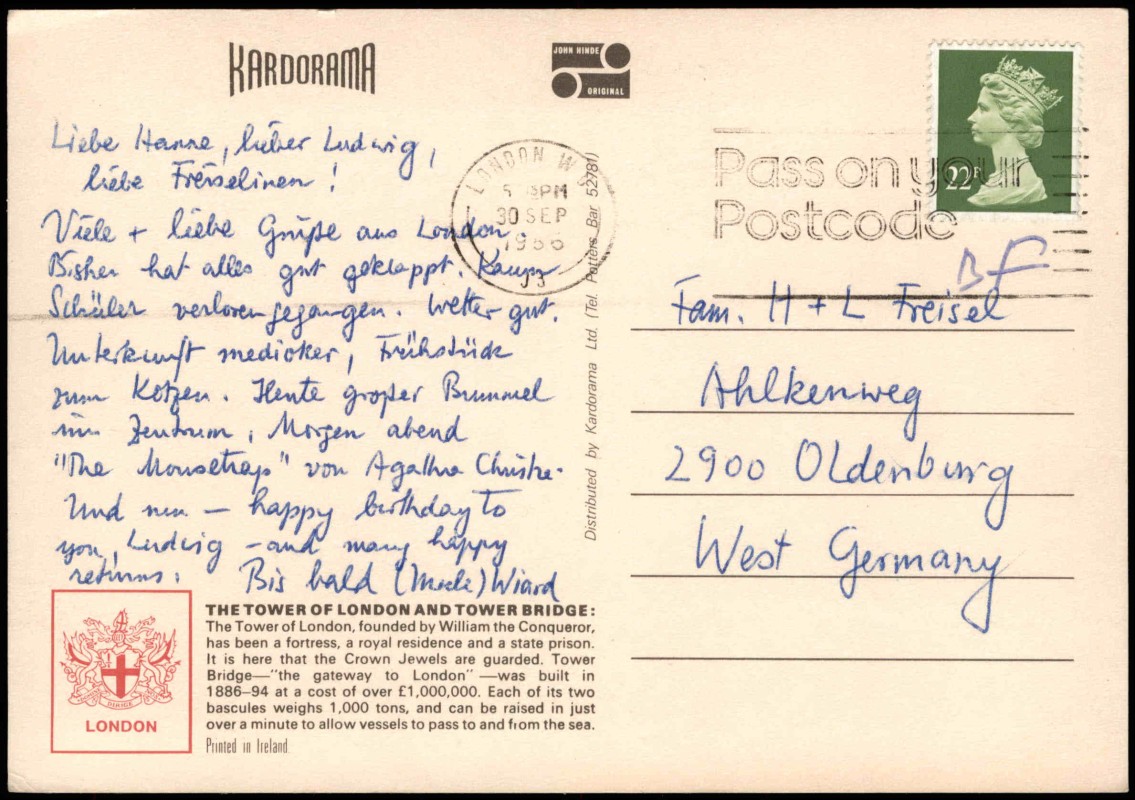 KARDORAMA
JOHN HINDE
ORIGINAL
Liebe Hanne, lieber Ludwig,
liebe Freiselinen!
Viele + liebe Grüße aus London.
Bisher hat alles gut geklappt. Kaum
Schüler verloren gegangen. Wetter gut.
Unterkunft medioker, Frühstück
zum Kotzen. Heute großer Bummel
im Zentrum, Morgen abend
"The Mousetrap" von Agatha Christie.
Und nun – happy birthday to
you, Ludwig – and many happy
returns!
Bis bald Wiard
LONDON W
PM
30 SEP
1986
Pass on your
Postcode
22P
BF
Fam. H + L Freisel
Ahlkenweg
2900 Oldenburg
West Germany
Distributed by Kardorama Ltd. (Tel. Potters Bar 52781)
DIRIGE
LONDON
THE TOWER OF LONDON AND TOWER BRIDGE:
The Tower of London, founded by William the Conqueror,
has been a fortress, a royal residence and a state prison.
It is here that the Crown Jewels are guarded. Tower
Bridge—"the gateway to London"—was built in
1886–94 at a cost of over £1,000,000. Each of its two
bascules weighs 1,000 tons, and can be raised in just
over a minute to allow vessels to pass to and from the sea.
Printed in Ireland